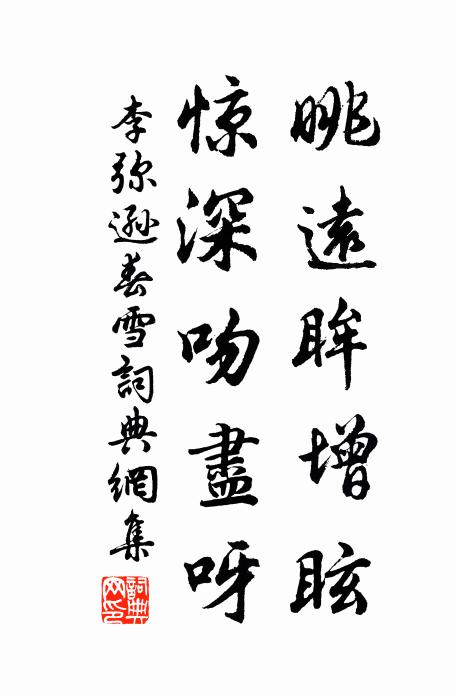 眺遠眸增眩
惊深吻盡呀
李弥遜春雪詞典網集